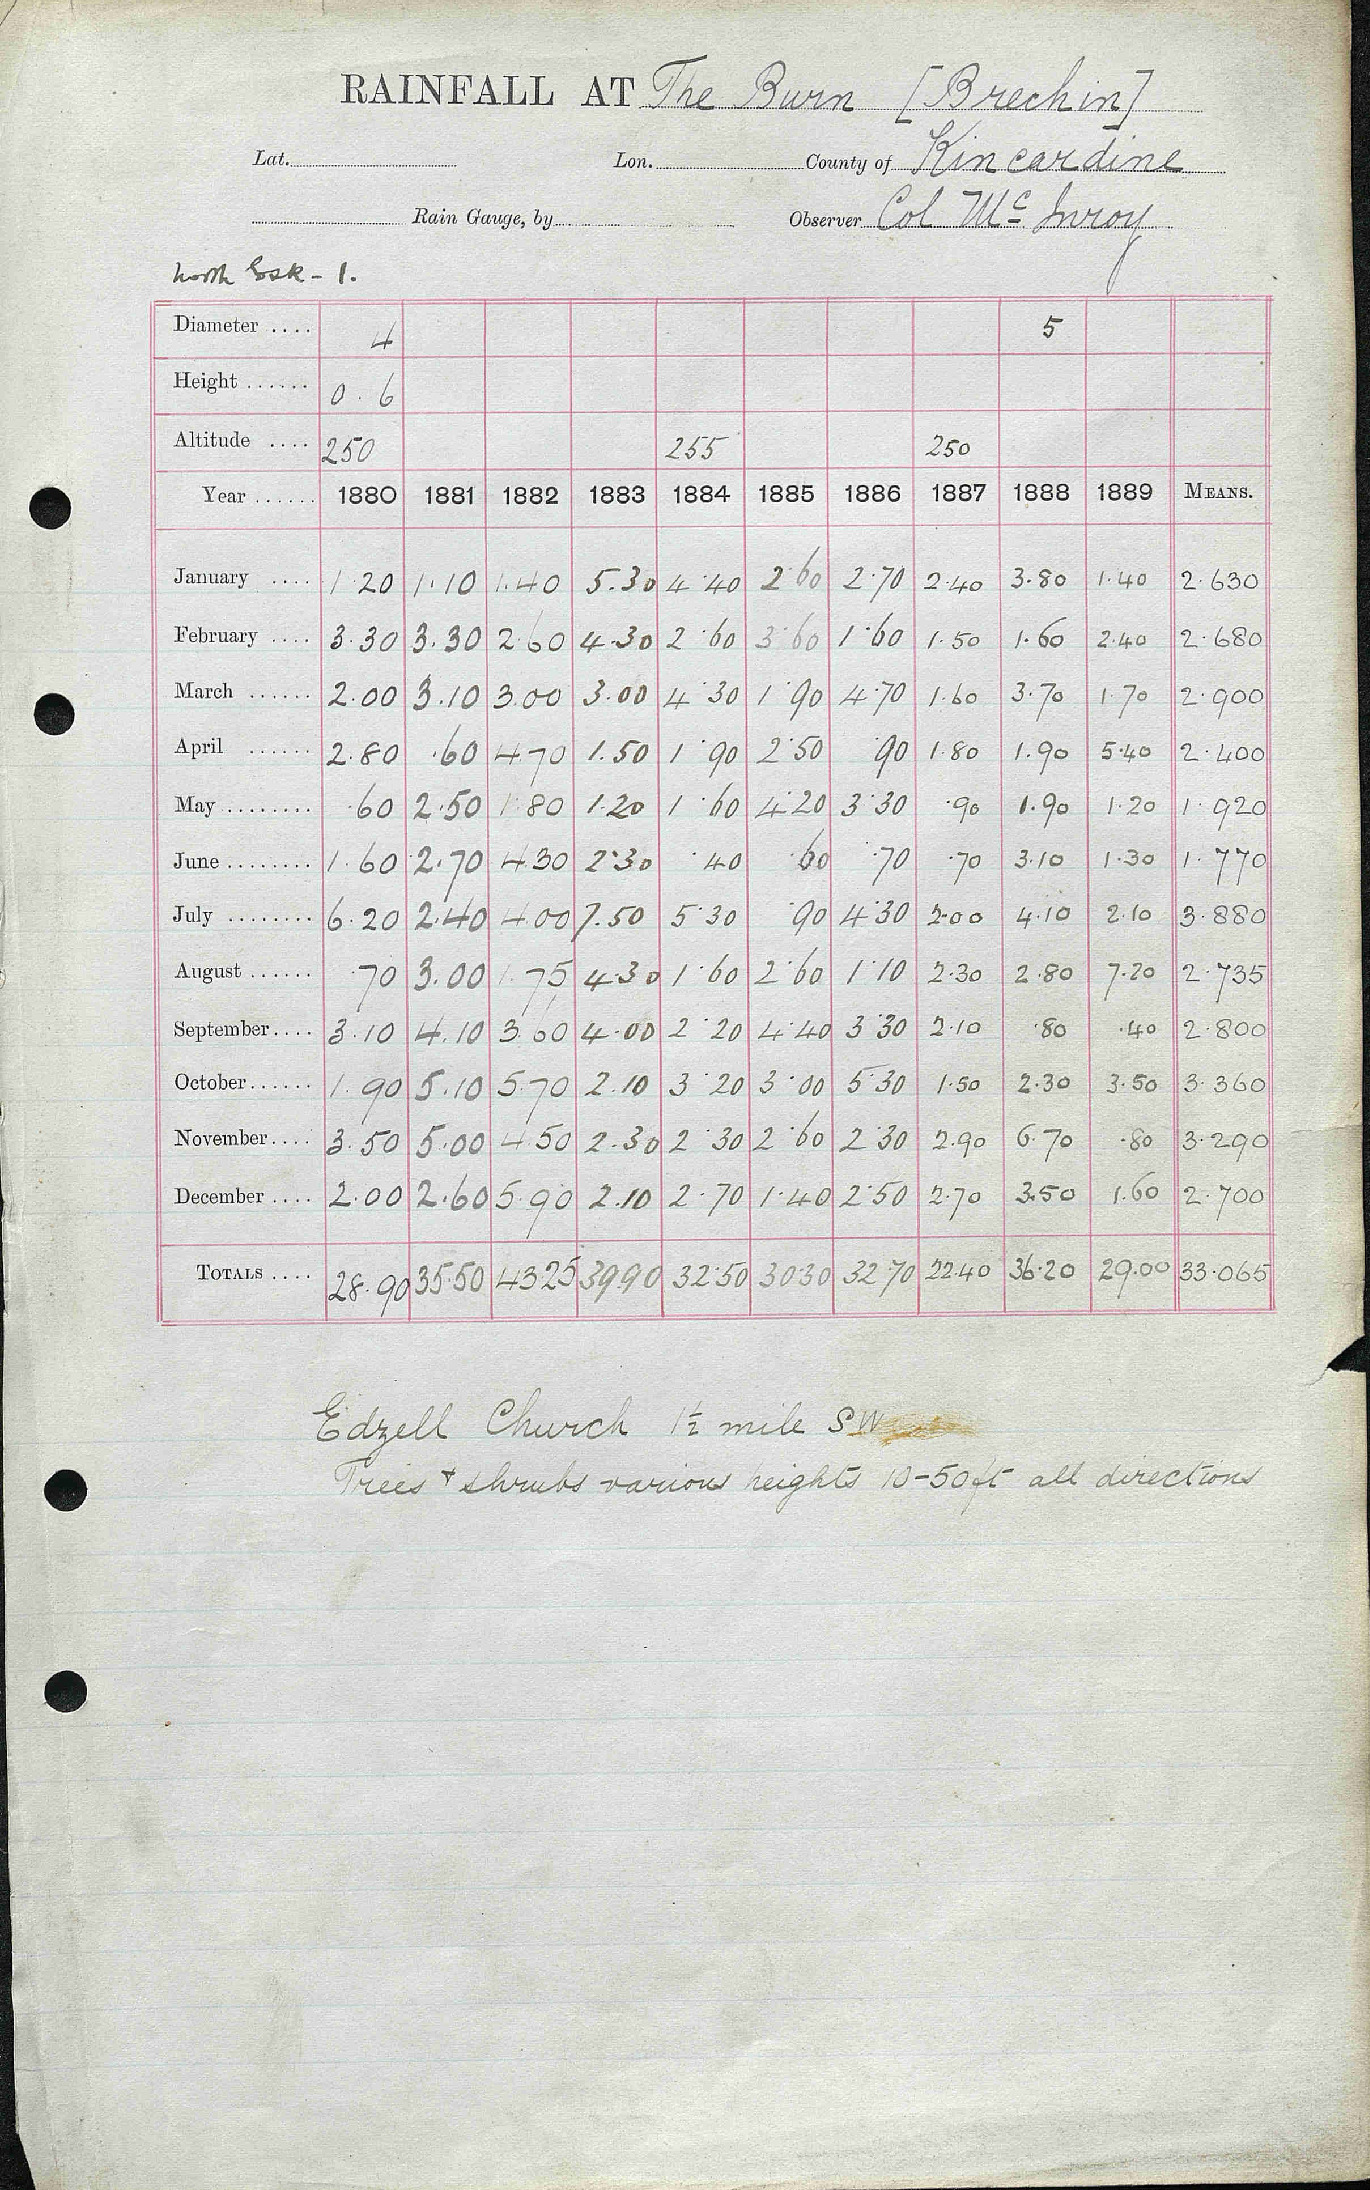 RAINFALL AT The Burn [Brechin]
Lat. Lon. County of Kincardine
Rain Gauge, by Observer Col Mc Inroy
North Esk - 1.
Diameter .... 4 5
Height ...... 0.6
Altitude .... 250 255 250
Year ...... 1880 1881 1882 1883 1884 1885 1886 1887 1888 1889 MEANS.
January .... 1.20 1.10 1.40 5.30 4.40 2.60 2.70 2.40 3.80 1.40 2.630
February .... 3.30 3.30 2.60 4.30 2.60 3.60 1.60 1.50 1.60 2.40 2.680
March ...... 2.00 3.10 3.00 3.00 4.30 1.90 4.70 1.60 3.70 1.70 2.900
April ...... 2.80 .60 4.70 1.50 1.90 2.50 .90 1.80 1.90 5.40 2.400
May ........ .60 2.50 1.80 1.20 1.60 4.20 3.30 .90 1.90 1.20 1.920
June ........ 1.60 2.70 4.30 2.30 .40 .60 .70 .70 3.10 1.30 1.770
July ........ 6.20 2.40 4.00 7.50 5.30 .90 4.30 2.00 4.10 2.10 3.880
August ...... .70 3.00 1.75 4.30 1.60 2.60 1.10 2.30 2.80 7.20 2.735
September .... 3.10 4.10 3.60 4.00 2.20 4.40 3.30 2.10 .80 .40 2.800
October ...... 1.90 5.10 5.70 2.10 3.20 3.00 5.30 1.50 2.30 3.50 3.360
November .... 3.50 5.00 4.50 2.30 2.30 2.60 2.30 2.90 6.70 .80 3.290
December .... 2.00 2.60 5.90 2.10 2.70 1.40 2.50 2.70 3.50 1.60 2.700
TOTALS .... 28.90 35.50 43.25 39.90 32.50 30.30 32.70 22.40 36.20 29.00 33.065
Edzell Church 1½ mile SW
Trees & shrubs various heights 10-50ft all directions